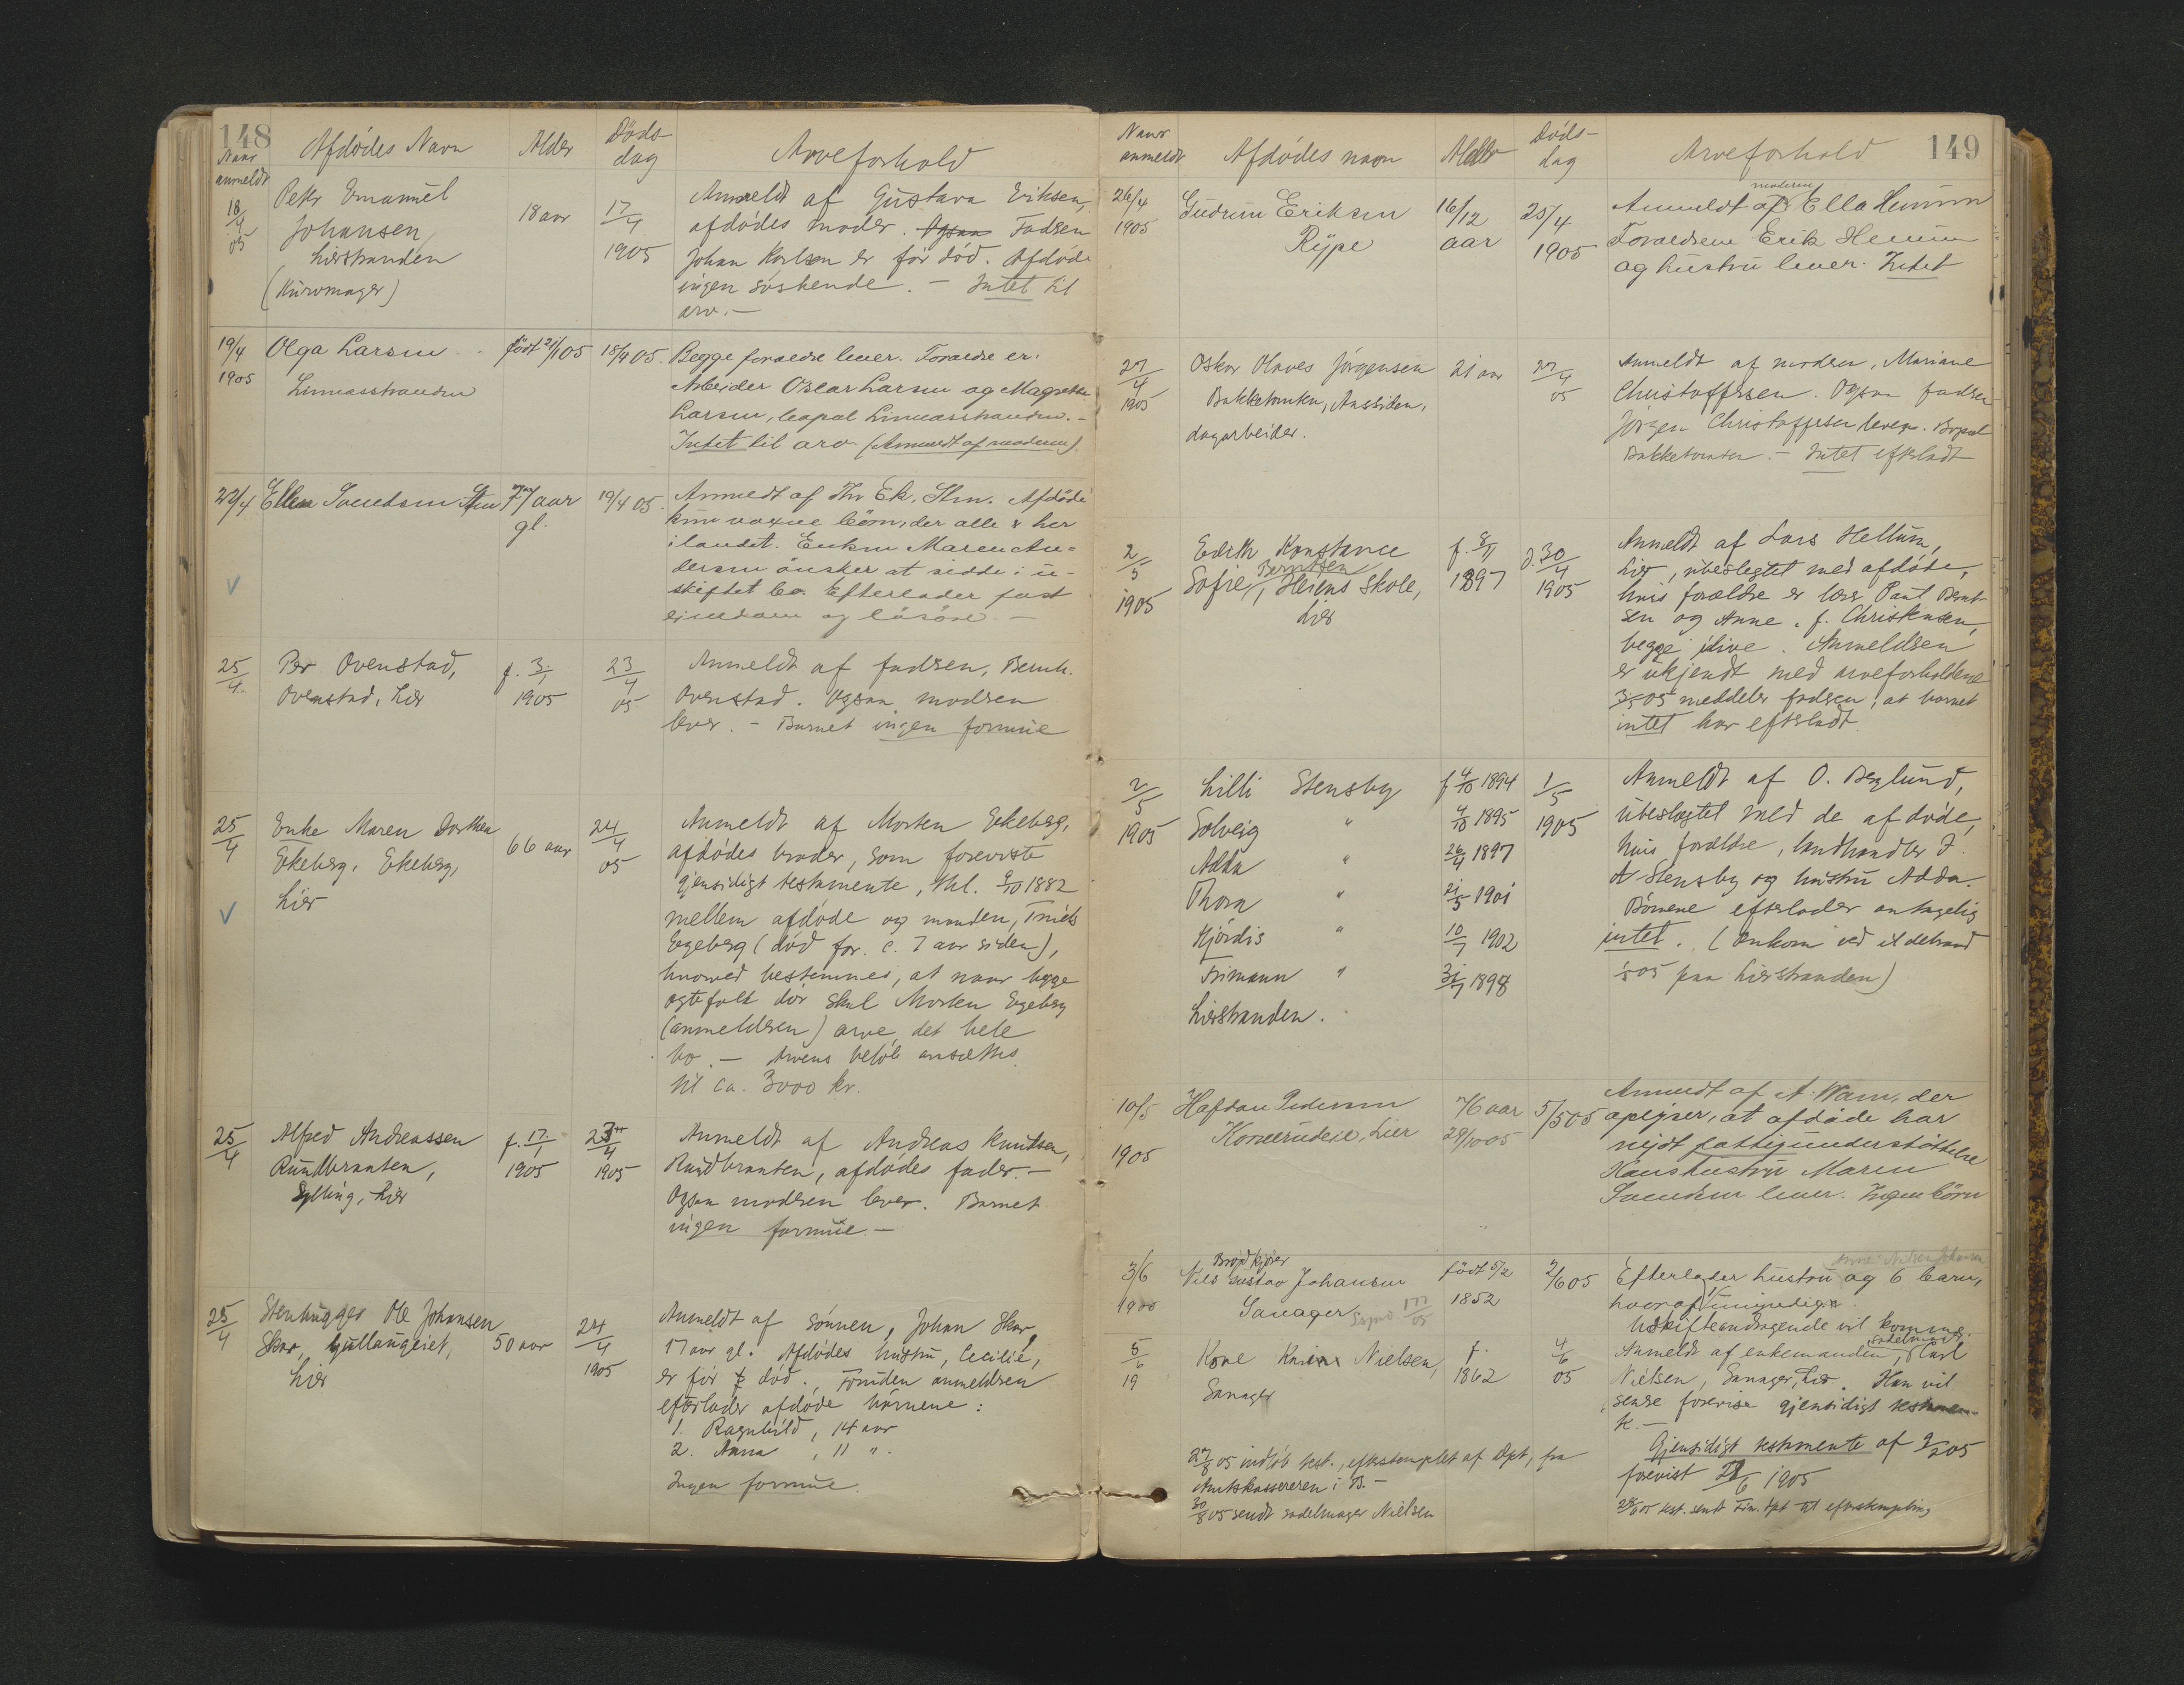 148
Naar anmeldt Afdödes Navn Alder Döds- dag Arveforhold
18/4 05
Peter Emanuel
Johansen
Lierstranden
(Kurvmager)
18 aar
17/4 1905
Anmeldt af Gustava Eriksen,
afdödes moder. Ogsaa Faderen
Johan Karlsen er før död. Afdöde
ingen söskende. – Intet til
arv. –
19/4 1905
Olga Larsen
Linnesstranden
født 21/1 05
18/4 05.
Begge forældre lever. Forældre er:
Arbeider Oscar Larsen og Magrethe
Larsen, bopal Linnesstranden. –
Intet til arv (Anmeldt af moderen).
22/4
Ellen Svendsen
77 aar
gl.
19/4 05.
Anmeldt af Thv Ek. Stn. Afdöde
kun voxne börn, der alle er her
i landet. Enken Maren An=
dersen önsker at sidde i u-
skiftet bo. Efterlader fast
eiendom og lösöre. –
25/4
Per Ovenstad,
Ovenstad, Lier
f. 3/1 1905
23/4 05
Anmeldt af faderen, Bernh.
Ovenstad. Ogsaa moderen
lever. – Barnet ingen formue
25/4
Enke Maren Dorthea
Ekeberg, Ekeberg,
Lier
66 aar
24/4 05
Anmeldt af Morten Ekeberg,
afdödes broder, som foreviste
gjensidigt testamente, thl. 9/10 1882
mellem afdöde og manden, Truels
Egeberg (död for c. 7 aar siden),
hvorved bestemmes, at naar begge
ægtefolk dör skal Morten Egeberg
(anmelderen) arve det hele
bo. – Arvens belöb ansættes
til ca. 3000 kr.
25/4
Alfred Andreassen
Rundbraaten,
Sylling, Lier
f. 17/1 1905
23/4 1905
Anmeldt af Andreas Knutsen,
Rundbraaten, afdödes fader. –
Ogsaa moderen lever. Barnet
ingen formue. –
25/4
Stenhugger Ole Johansen
Skar, Gullaugeiet,
Lier
50 aar
24/4 1905
Anmeldt af sönnen, Johan Skar,
17 aar gl. Afdödes hustru, Cecilie,
er för död. Foruden anmelderen
efterlader afdöde börnene:
1. Ragnhild, 14 aar
2. Anna, 11 ".
Ingen formue.
149
Naar anmeldt Afdödes navn Alder Döds- dag Arveforhold
26/4 1905
Gudrun Eriksen
Rype
16/12 aar
25/4 1905
moderen
Anmeldt af Ella Hennum
Forældrene Erik Hennum
og hustru lever. Intet
27/4 1905
Oskar Olaves Jörgensen
Bakketomten, Aassiden,
dagarbeider.
21 aar
27/4 05
Anmeldt af moderen, Mariane
Christoffersen. Ogsaa faderen
Jörgen Christoffersen lever. Bopæl
Bakketomten. – Intet efterladt
2/5 1905
Edith Konstance
Berntsen
Sofie, Heiens skole,
Lier
f. 8/1 1897
d. 30/4 1905
Anmeldt af Lars Hellum,
Lier, ubeslegtet med afdöde,
hvis forældre er lærer Paul Bernt-
sen og Anne, f. Christensen,
begge ilive. Anmelderen
er ukjendt med arveforholdene
3/5 05 meddeler faderen, at barnet
intet har efterladt.
2/5 1905
Lilli Stensby f 4/10 1894
Solveig " 4/10 1895
Adda " 26/4 1897
Thora " 21/5 1901
Hjördis " 10/7 1902
Trimann " 31/7 1898
Lierstranden.
1/5 1905
Anmeldt af O. Berglund,
ubeslegtet med de afdöde,
hvis forældre, landhandler J.
A Stensby og hustru Adda.
Börnene efterlader antagelig
intet. (Omkom ved ildebrand
1/5 05 paa Lierstranden)
10/5 1905
Halfdan Pedersen
Komerudeie, Lier
76 aar
29/10 05
5/5 05
Anmeldt af A. Warn, der
oplyser, at afdöde har
nydt fattigunderstöttelse
Hans hustru Maren
Svendsen lever. Ingen börn
3/6 1905
Brödkjörer
Nils Gustav Johansen
Sanager
født 5/2 1852
2/6 05
Efterlader hustru og 6 barn,
hvoraf 1 umyndig.
Uskifteandragende vil komme.
5/6 19
Kone Karen Nielsen,
Sanager
f. 1862
4/6 05
Anmeldt af enkemanden, sadelmager Carl
Nielsen, Sanager, Lier. Han vil
senere forevise gjensidigt testamen-
te. –
Gjensidigt testamente af 9/2 05
forevist 1905
28/6 05 test. sendt Fin. dpt til efterstempling
27/8 05 indlöb test., efterstemplet af Dpt, fra
Amtskassereren i B. –
30/8 05 sendt sadelmager Nielsen